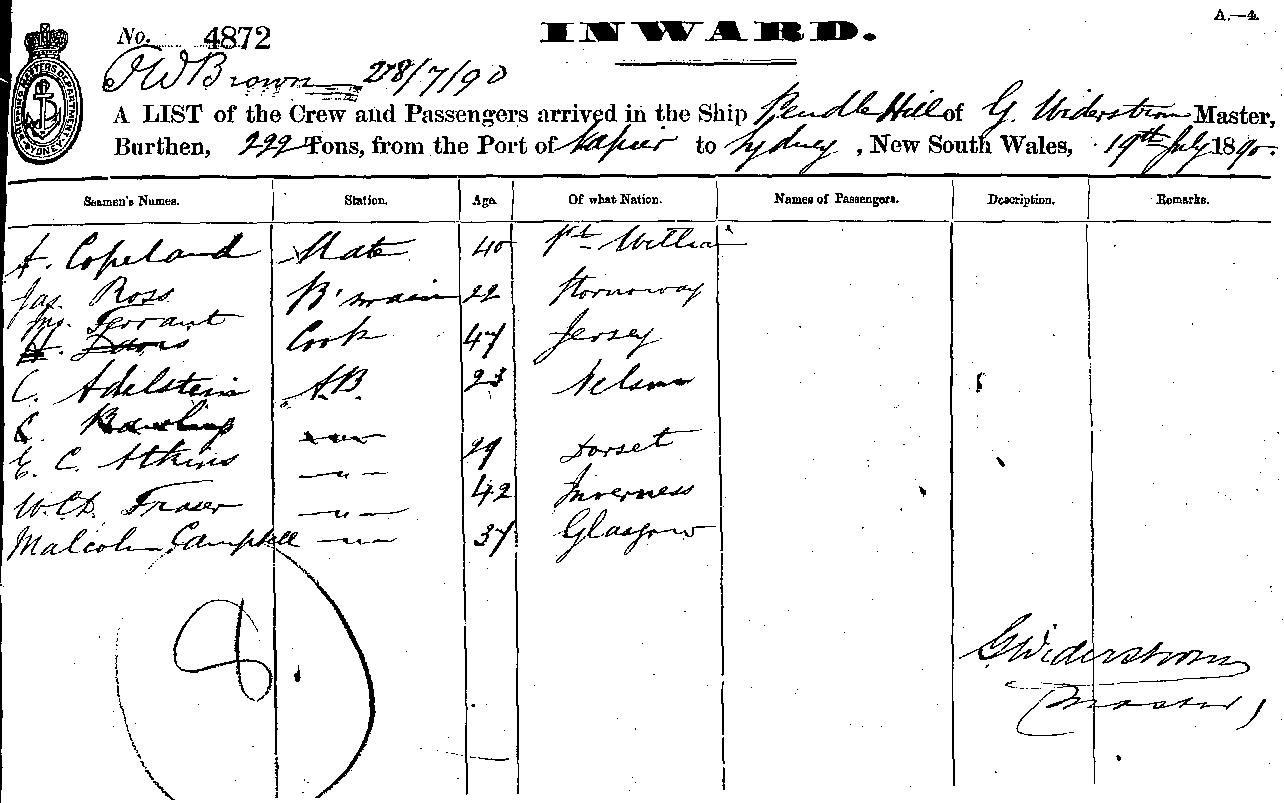 A.—4.
No. 4872 INWARD.
28/7/90
A LIST of the Crew and Passengers arrived in the Ship Pendle Hill of G. Widerstrom Master,
Burthen, 222 Tons, from the Port of Napier to Sydney, New South Wales, 19th July 1890.
Seamen's Names. Station. Age. Of what Nation. Names of Passengers. Description. Remarks.
A. Copeland Mate 40 Ft. William
Jas. Ross B'swain 22 Stornoway
Jno. Terrant
Cook 47 Jersey
C. Adelstein A.B. 23 Nelson
E. C. Atkins —"— 29 Dorset
Fraser —"— 42 Inverness
Malcolm Campbell —"— 37 Glasgow
8.
G Widerstrom
(Master)